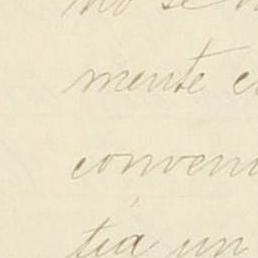 no se
mente
conveni
tía un